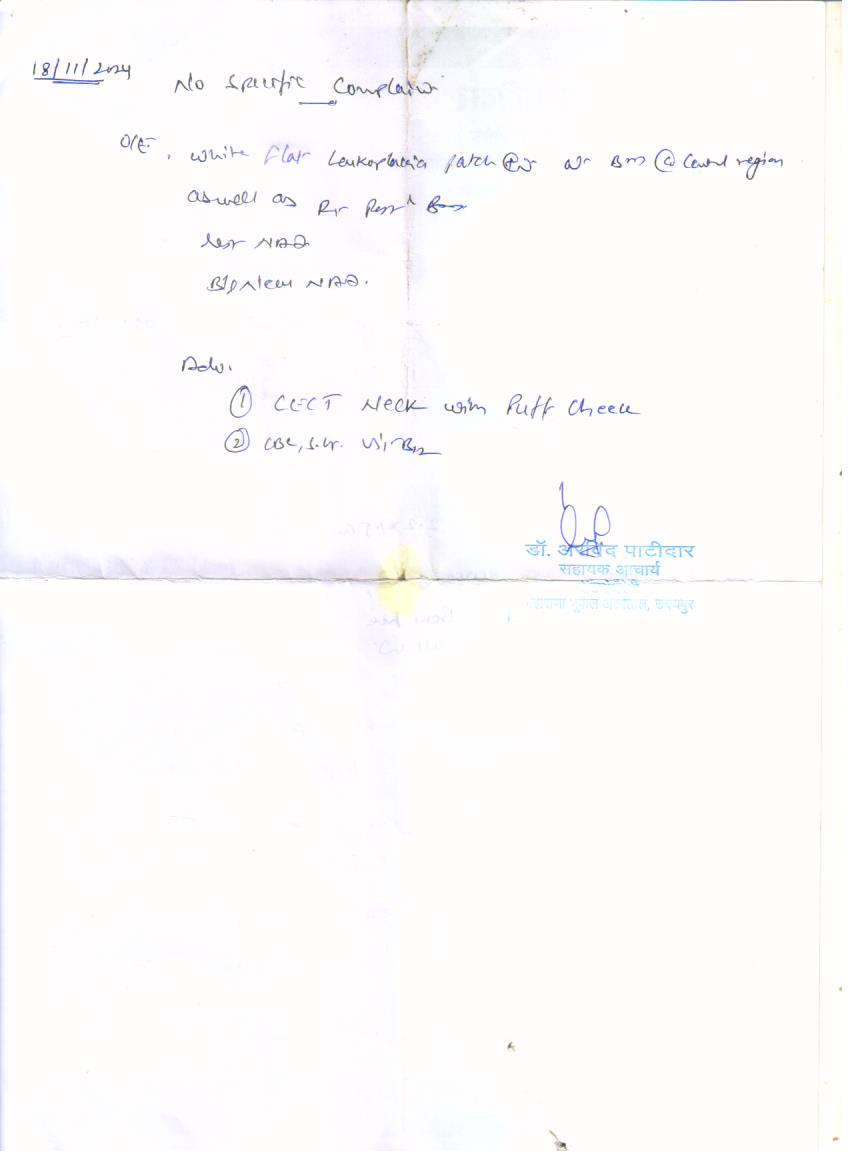 18/11/2024
No Specific Complain
O/E. white flat Leukoplakia patch on BM @ region
as well as Rt
rest NAD
B/L Neck NAD.
Adv.
① CECT Neck with Puff Cheek
② CBC, S. Vit B12
डॉ. अरविंद पाटीदार
सहायक आचार्य
महाराणा भूपाल अस्पताल, उदयपुर